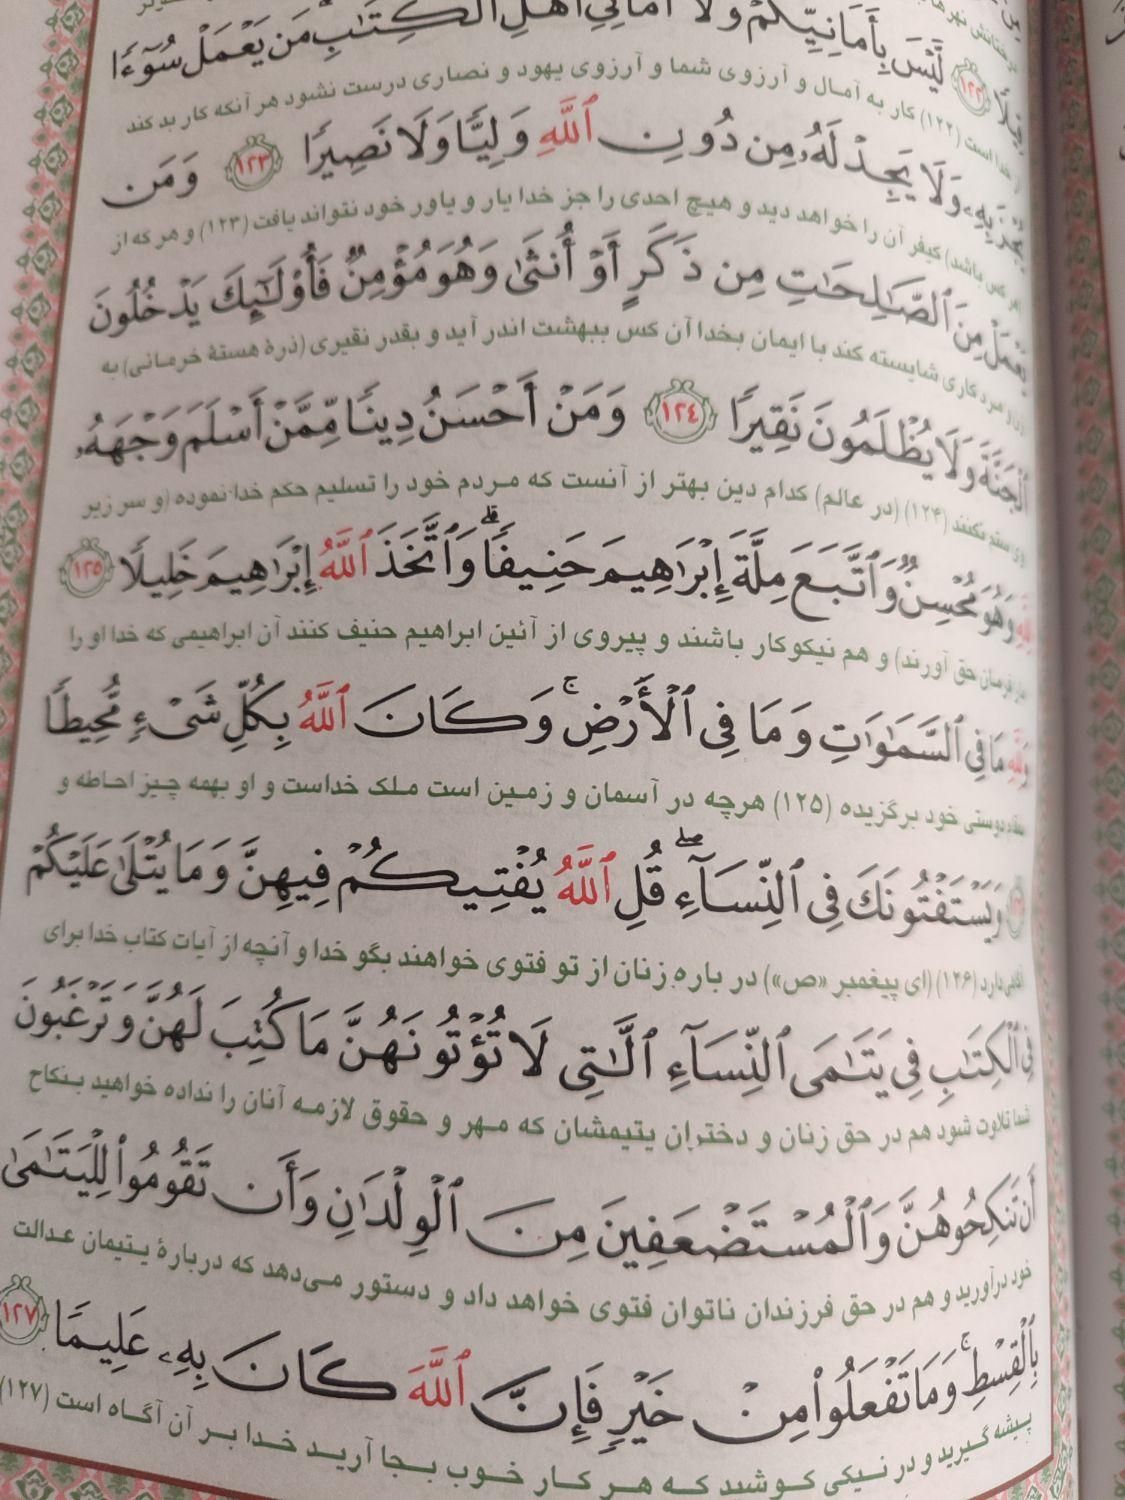 لَّيۡسَ بِأَمَانِيِّكُمۡ وَلَآ أَمَانِيِّ أَهۡلِ ٱلۡكِتَٰبِ مَن يَعۡمَلۡ سُوٓءٗا
است (۱۲۲) کار به آمال و آرزوی شما و آرزوی یهود و نصاری درست نشود هر آنکه کار بد کند
يُجۡزَ بِهِۦ وَلَا يَجِدۡ لَهُۥ مِن دُونِ ٱللَّهِ وَلِيّٗا وَلَا نَصِيرٗا ١٢٣ وَمَن
کیفر آن را خواهد دید و هیچ احدی را جز خدا یار و یاور خود نتواند یافت (۱۲۳) و هر که از
يَعۡمَلۡ مِنَ ٱلصَّٰلِحَٰتِ مِن ذَكَرٍ أَوۡ أُنثَىٰ وَهُوَ مُؤۡمِنٞ فَأُوْلَٰٓئِكَ يَدۡخُلُونَ
زن و مرد کاری شایسته کند با ایمان بخدا آن کس ببهشت اندر آید و بقدر نقیری (ذرهٔ هستهٔ خرمائی) به
ٱلۡجَنَّةَ وَلَا يُظۡلَمُونَ نَقِيرٗا ١٢٤ وَمَنۡ أَحۡسَنُ دِينٗا مِّمَّنۡ أَسۡلَمَ وَجۡهَهُۥ
وی ستم نکنند (۱۲۴) (در عالم) کدام دین بهتر از آنست که مردم خود را تسلیم حکم خدا نموده (و سر زیر
لِلَّهِ وَهُوَ مُحۡسِنٞ وَٱتَّبَعَ مِلَّةَ إِبۡرَٰهِيمَ حَنِيفٗاۗ وَٱتَّخَذَ ٱللَّهُ إِبۡرَٰهِيمَ خَلِيلٗا ١٢٥
فرمان حق آورند) و هم نیکوکار باشند و پیروی از آئین ابراهیم حنیف کنند آن ابراهیمی که خدا او را
وَلِلَّهِ مَا فِي ٱلسَّمَٰوَٰتِ وَمَا فِي ٱلۡأَرۡضِۚ وَكَانَ ٱللَّهُ بِكُلِّ شَيۡءٖ مُّحِيطٗا
دوستی خود برگزیده (۱۲۵) هرچه در آسمان و زمین است ملک خداست و او بهمه چیز احاطه و
وَيَسۡتَفۡتُونَكَ فِي ٱلنِّسَآءِۖ قُلِ ٱللَّهُ يُفۡتِيكُمۡ فِيهِنَّ وَمَا يُتۡلَىٰ عَلَيۡكُمۡ
آگاهی دارد (۱۲۶) (ای پیغمبر «ص») در باره زنان از تو فتوی خواهند بگو خدا و آنچه از آیات کتاب خدا برای
فِي ٱلۡكِتَٰبِ فِي يَتَٰمَى ٱلنِّسَآءِ ٱلَّٰتِي لَا تُؤۡتُونَهُنَّ مَا كُتِبَ لَهُنَّ وَتَرۡغَبُونَ
شما تلاوت شود هم در حق زنان و دختران یتیمشان که مهر و حقوق لازمه آنان را نداده خواهید بنکاح
أَن تَنكِحُوهُنَّ وَٱلۡمُسۡتَضۡعَفِينَ مِنَ ٱلۡوِلۡدَٰنِ وَأَن تَقُومُواْ لِلۡيَتَٰمَىٰ
خود درآورید و هم در حق فرزندان ناتوان فتوی خواهد داد و دستور می‌دهد که دربارهٔ یتیمان عدالت
بِٱلۡقِسۡطِۚ وَمَا تَفۡعَلُواْ مِنۡ خَيۡرٖ فَإِنَّ ٱللَّهَ كَانَ بِهِۦ عَلِيمٗا ١٢٧
پیشه گیرید و در نیکی کوشید که هر کار خوب بجا آرید خدا بر آن آگاه است (۱۲۷)